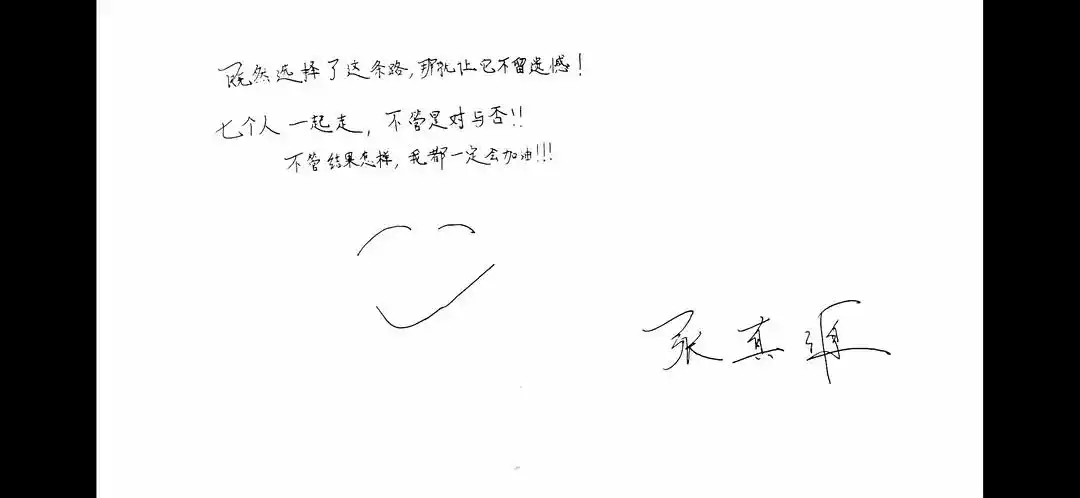 既然选择了这条路,那就让它不留遗憾!
七个人一起走,不管是对与否!!
不管结果怎样,我都一定会加油!!!
张真源